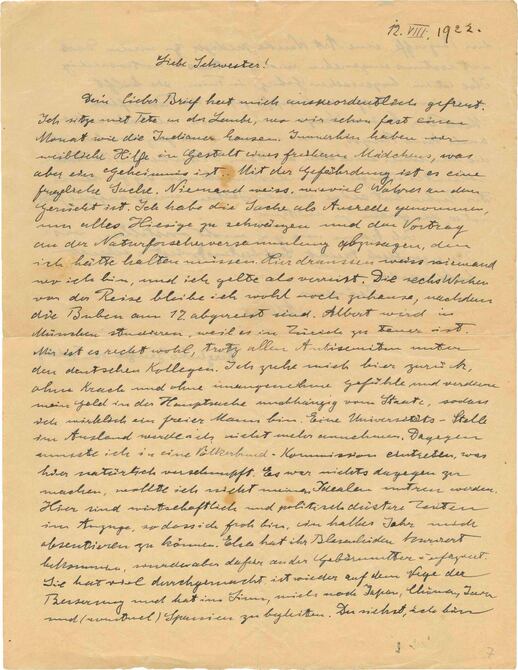 12. VIII. 1922.
Liebe Schwester!
Dein lieber Brief hat mich ausserordentlich gefreut.
Ich sitze mit Tete in der Laube, wo wir schon fast einen
Monat wie die Indianer hausen. Immerhin haben wir
weibliche Hilfe in Gestalt eines früheren Mädchens, was
aber ein Geheimnis ist. Mit der Gefährdung ist es eine
fragliche Sache. Niemand weiss, wieviel Wahres an dem
Gerücht ist. Ich habe die Sache als Ausrede genommen,
um alles Hiesige zu schwänzen und den Vortrag
an der Naturforscherversammlung abzusagen, den
ich hätte halten müssen. Hier draussen weiss niemand
wo ich bin, und ich gelte als verreist. Die sechs Wochen
vor der Reise bleibe ich wohl noch zuhause, nachdem
die Buben am 17. abgereist sind. Albert wird in
München studieren, weil es in Zürich zu teuer ist.
Mir ist es recht wohl, trotz allen Antisemiten unter
den deutschen Kollegen. Ich ziehe mich hier zurück,
ohne Krach und ohne unangenehme Gefühle und verdiene
mein Geld in der Hauptsache unabhängig vom Staate, sodass
ich wirklich ein freier Mann bin. Eine Universitäts-Stelle
im Ausland werde ich nicht mehr annehmen. Dagegen
musste ich in eine Völkerbund-Kommission eintreten, was
hier natürlich verschnupft. Es war nichts dagegen zu
machen, wollte ich nicht meinen Idealen untreu werden.
Hier sind wirtschaftlich und politisch düstere Zeiten
im Anzuge, sodass ich froh bin, ein halbes Jahr mich
absentieren zu können. Elsa hat ihr Blasenleiden kuriert
bekommen, wurde aber dafür an der Gebärmutter
Sie hat viel durchgemacht, ist wieder auf dem Wege der
Besserung und hat im Sinn, mich nach Japan, China, Java
und (eventuel) Spanien zu begleiten. Du siehst, ich bin
7